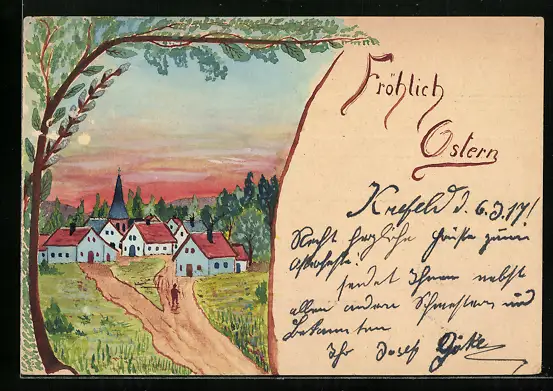 Fröhlich
Ostern
Krefeld d. 6.3.17!
Recht herzliche Grüße zum
Osterfeste
sendet Ihnen nebst
allen andern Schwestern und
Bekannten
Ihr Josef